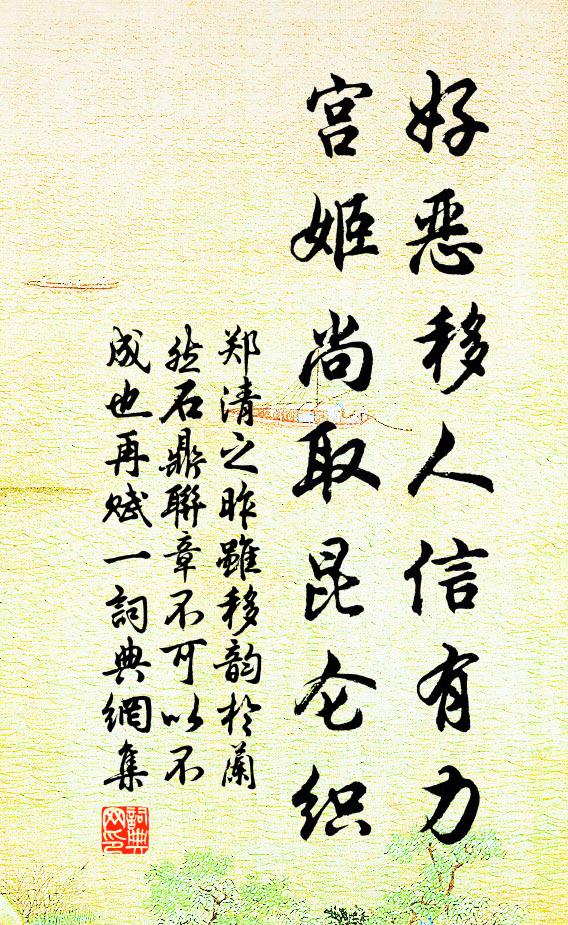 好恶移人信有力
宫姬尚取昆仑织
郑清之昨雖移韵於蘭
然石鼎聯章不可以不
成也再赋一詞典網集
詞典
网印